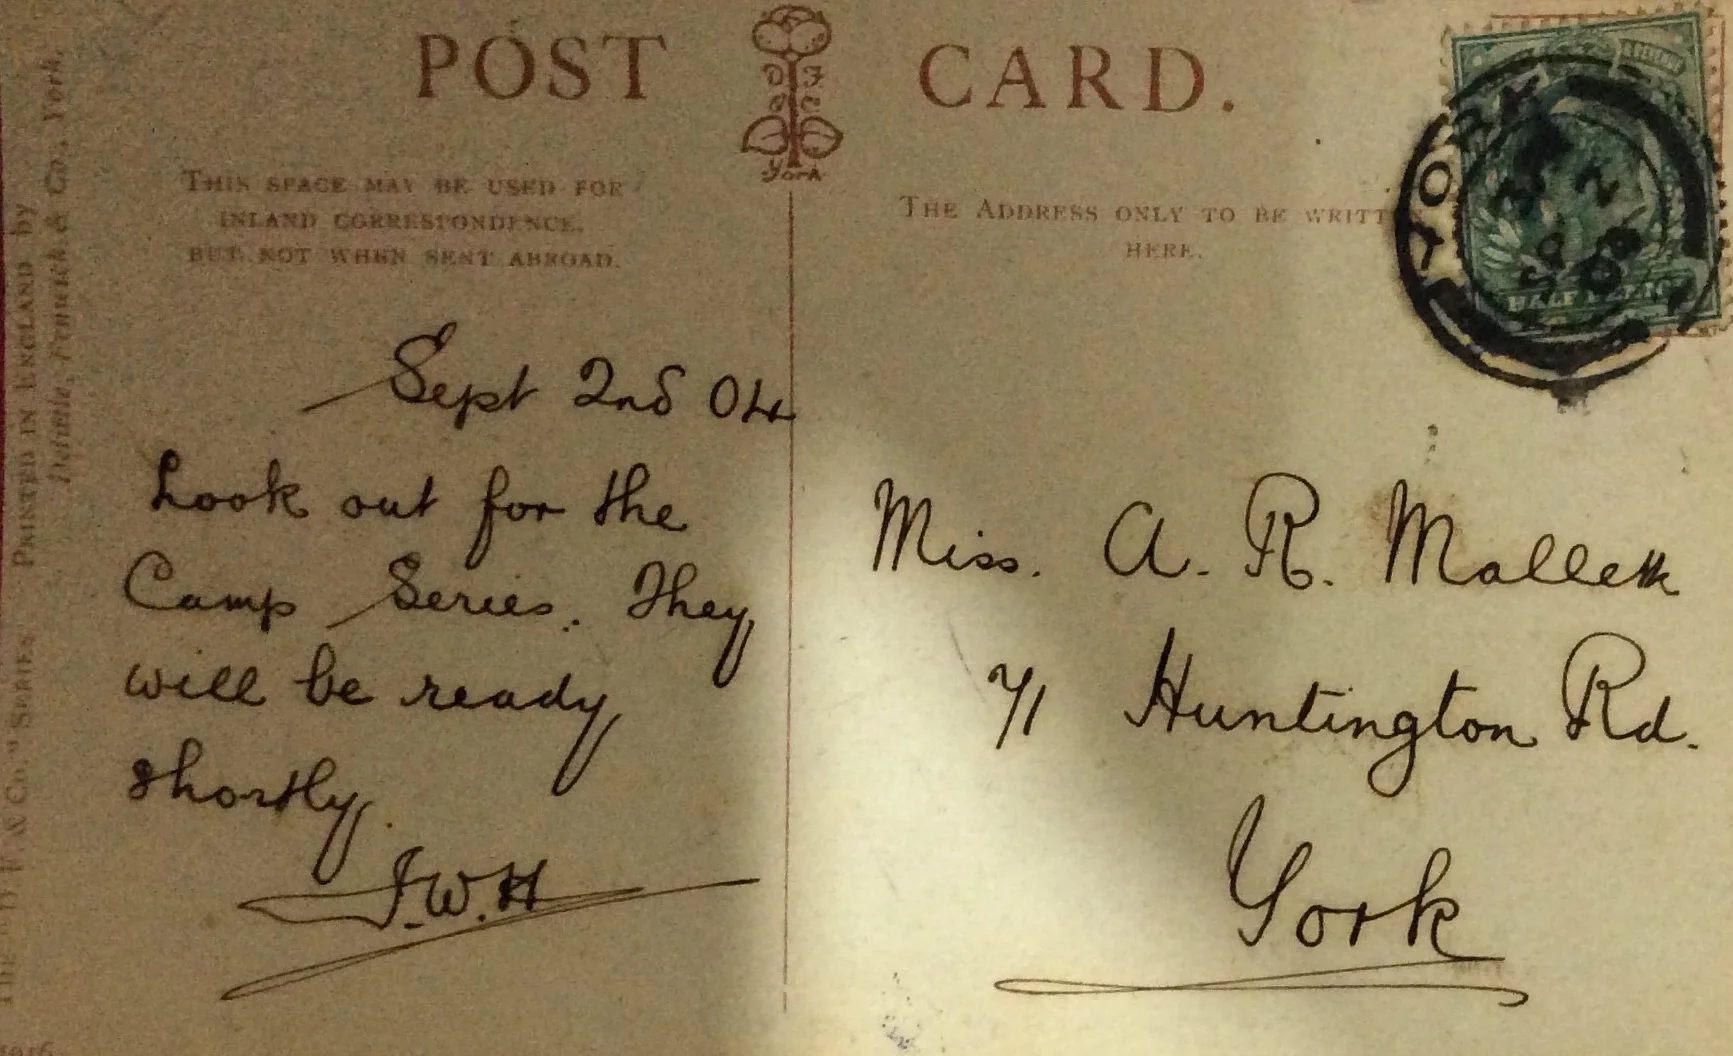 POST CARD.
York
THIS SPACE MAY BE USED FOR
INLAND CORRESPONDENCE,
BUT NOT WHEN SENT ABROAD.
THE ADDRESS ONLY TO BE WRITT
HERE.
YORK
SP 2
HALF PENNY
Sept 2nd 04
Look out for the
Camp Series. They
will be ready
shortly.
J.W.H
Miss. A. R. Mallett
71 Huntington Rd.
York
& Co." SERIES PRINTED IN ENGLAND by
& Co., York.